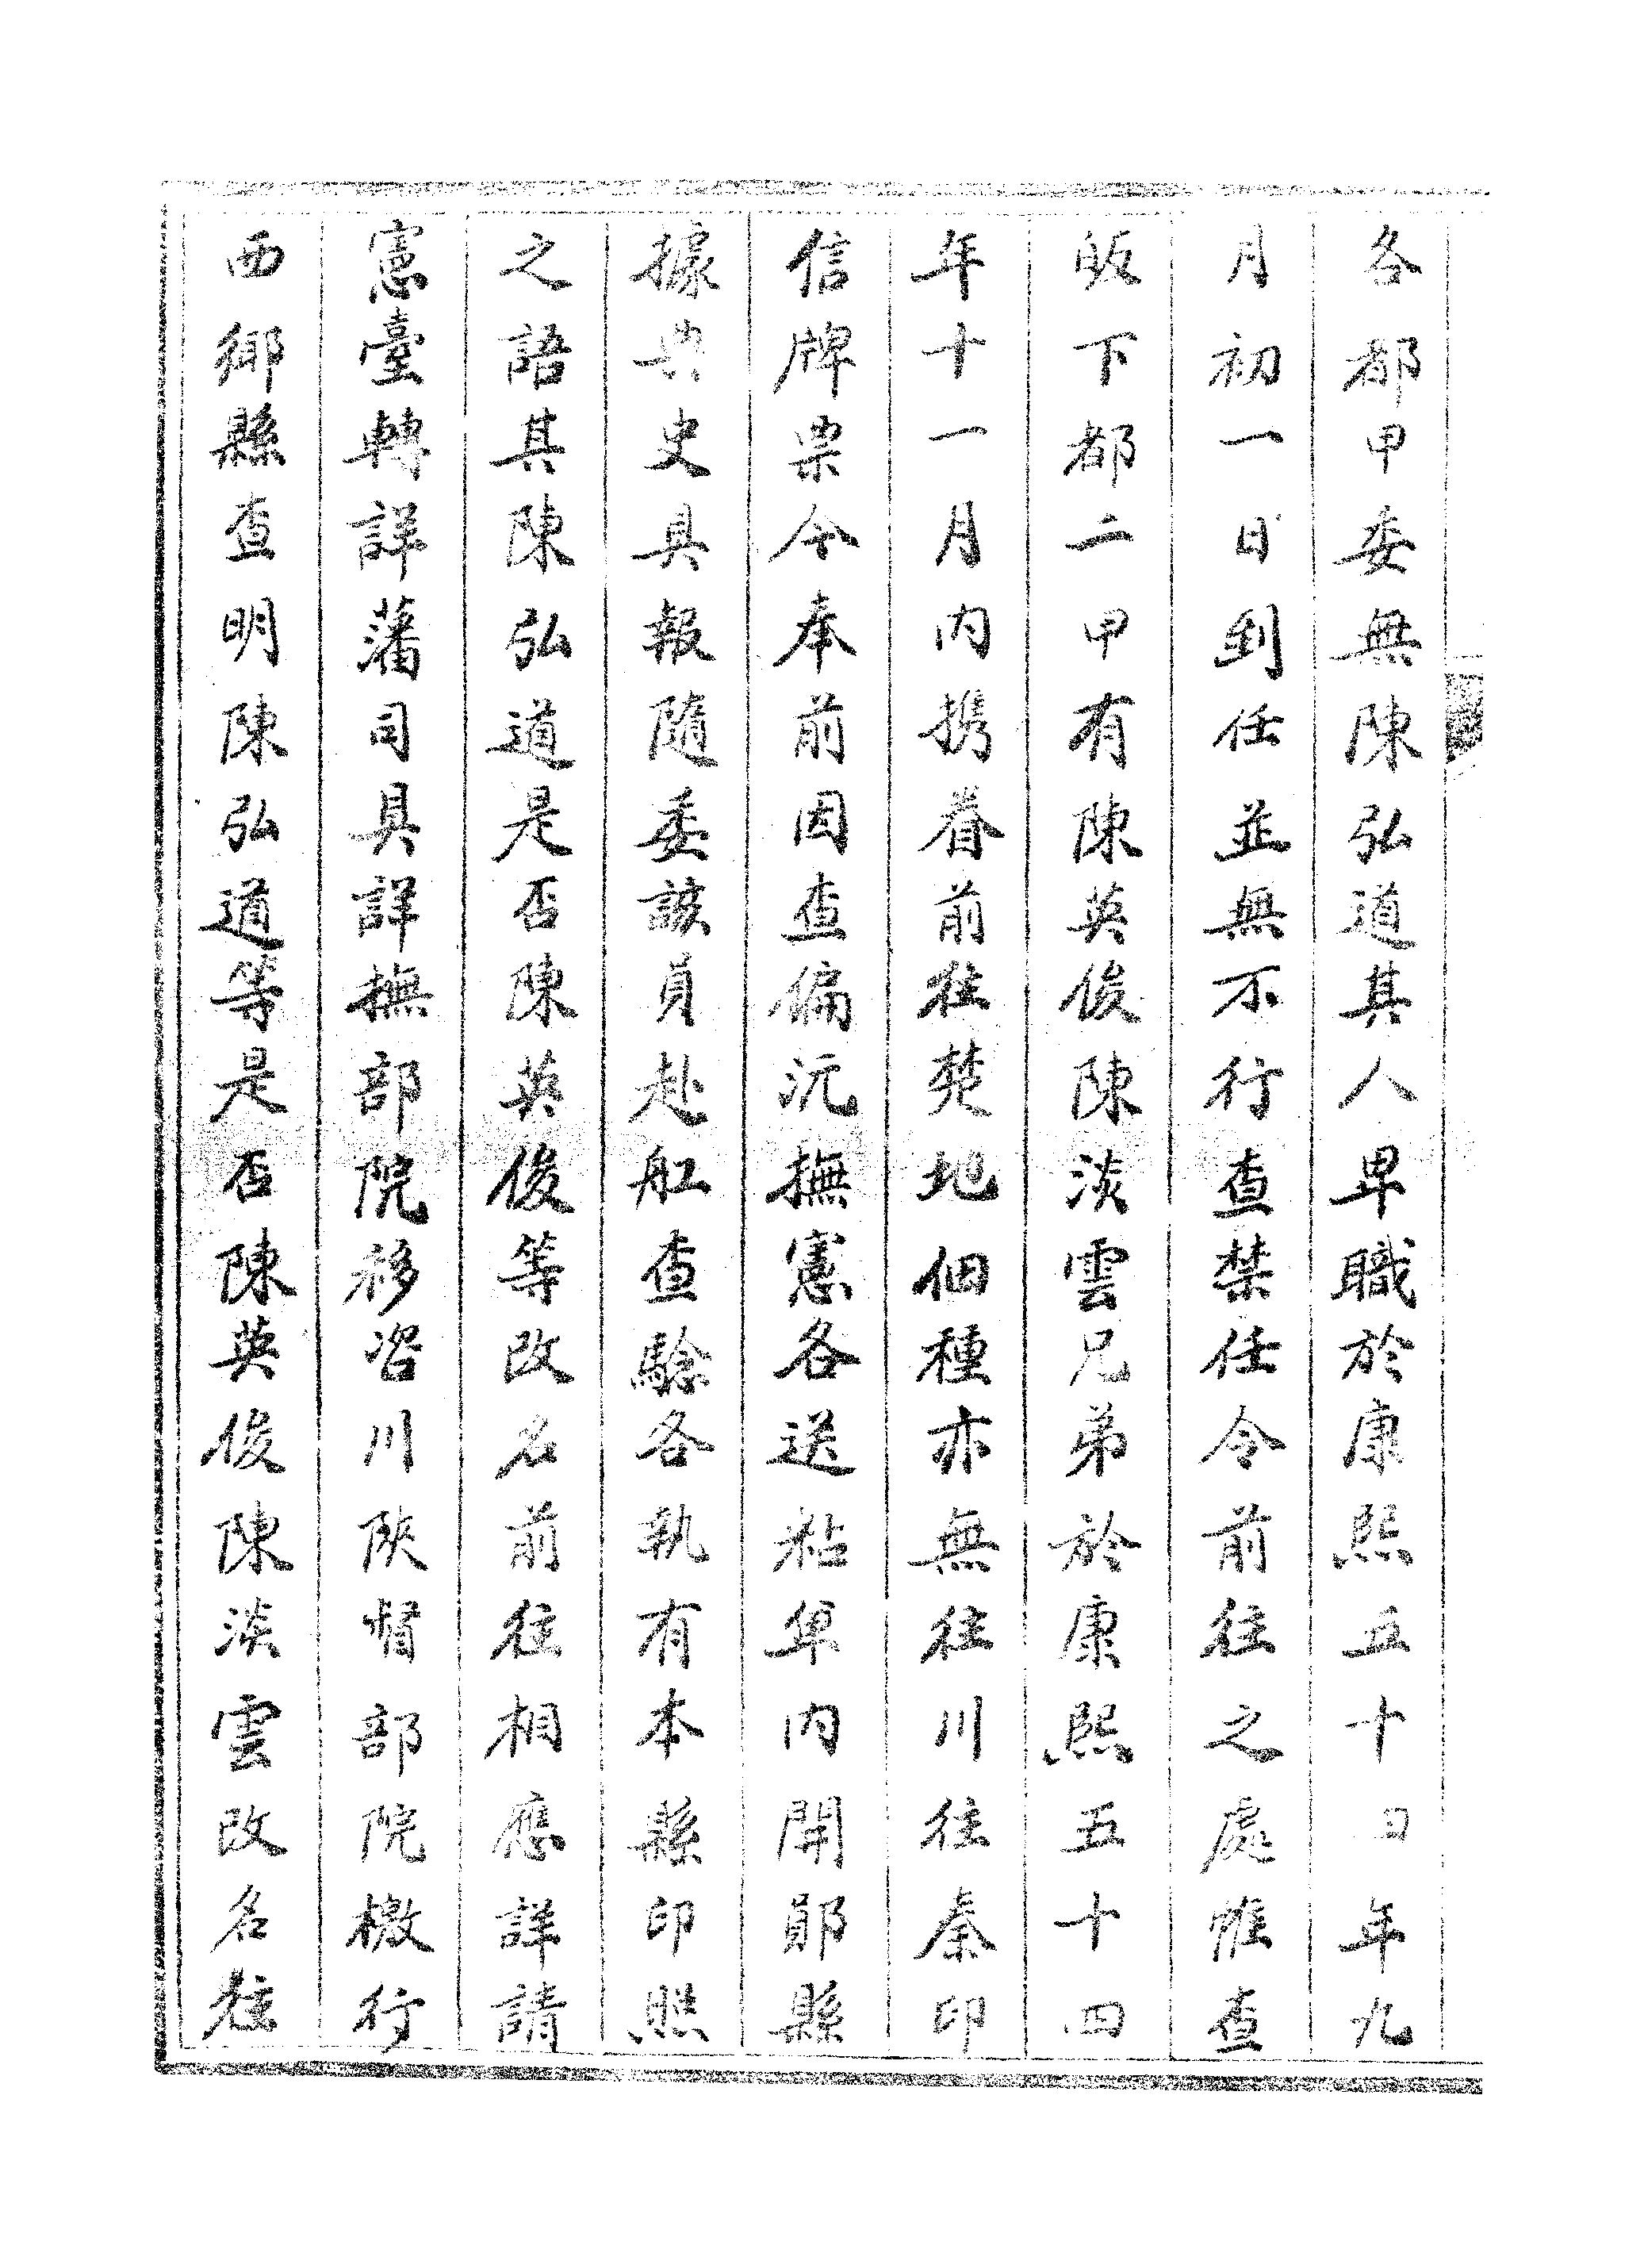 各都甲委無陳弘道其人卑職於康熙五十四年九
月初一日到任並無不行查禁任令前往之處惟查
皈下都二甲有陳英俊陳淡雲兄弟於康熙五十四
年十一月內携眷前往楚地佃種亦無往川往秦印
信牌票今奉前因查偏沅撫憲各送粘单内開鄖縣
據典史具報隨委該員赴舡查騐各執有本縣印照
之語其陳弘道是否陳英俊等改名前往相應詳請
憲臺轉詳藩司具詳撫部院移咨川陝督部院檄行
西鄉縣查明陳弘道等是否陳英俊陳淡雲改名往